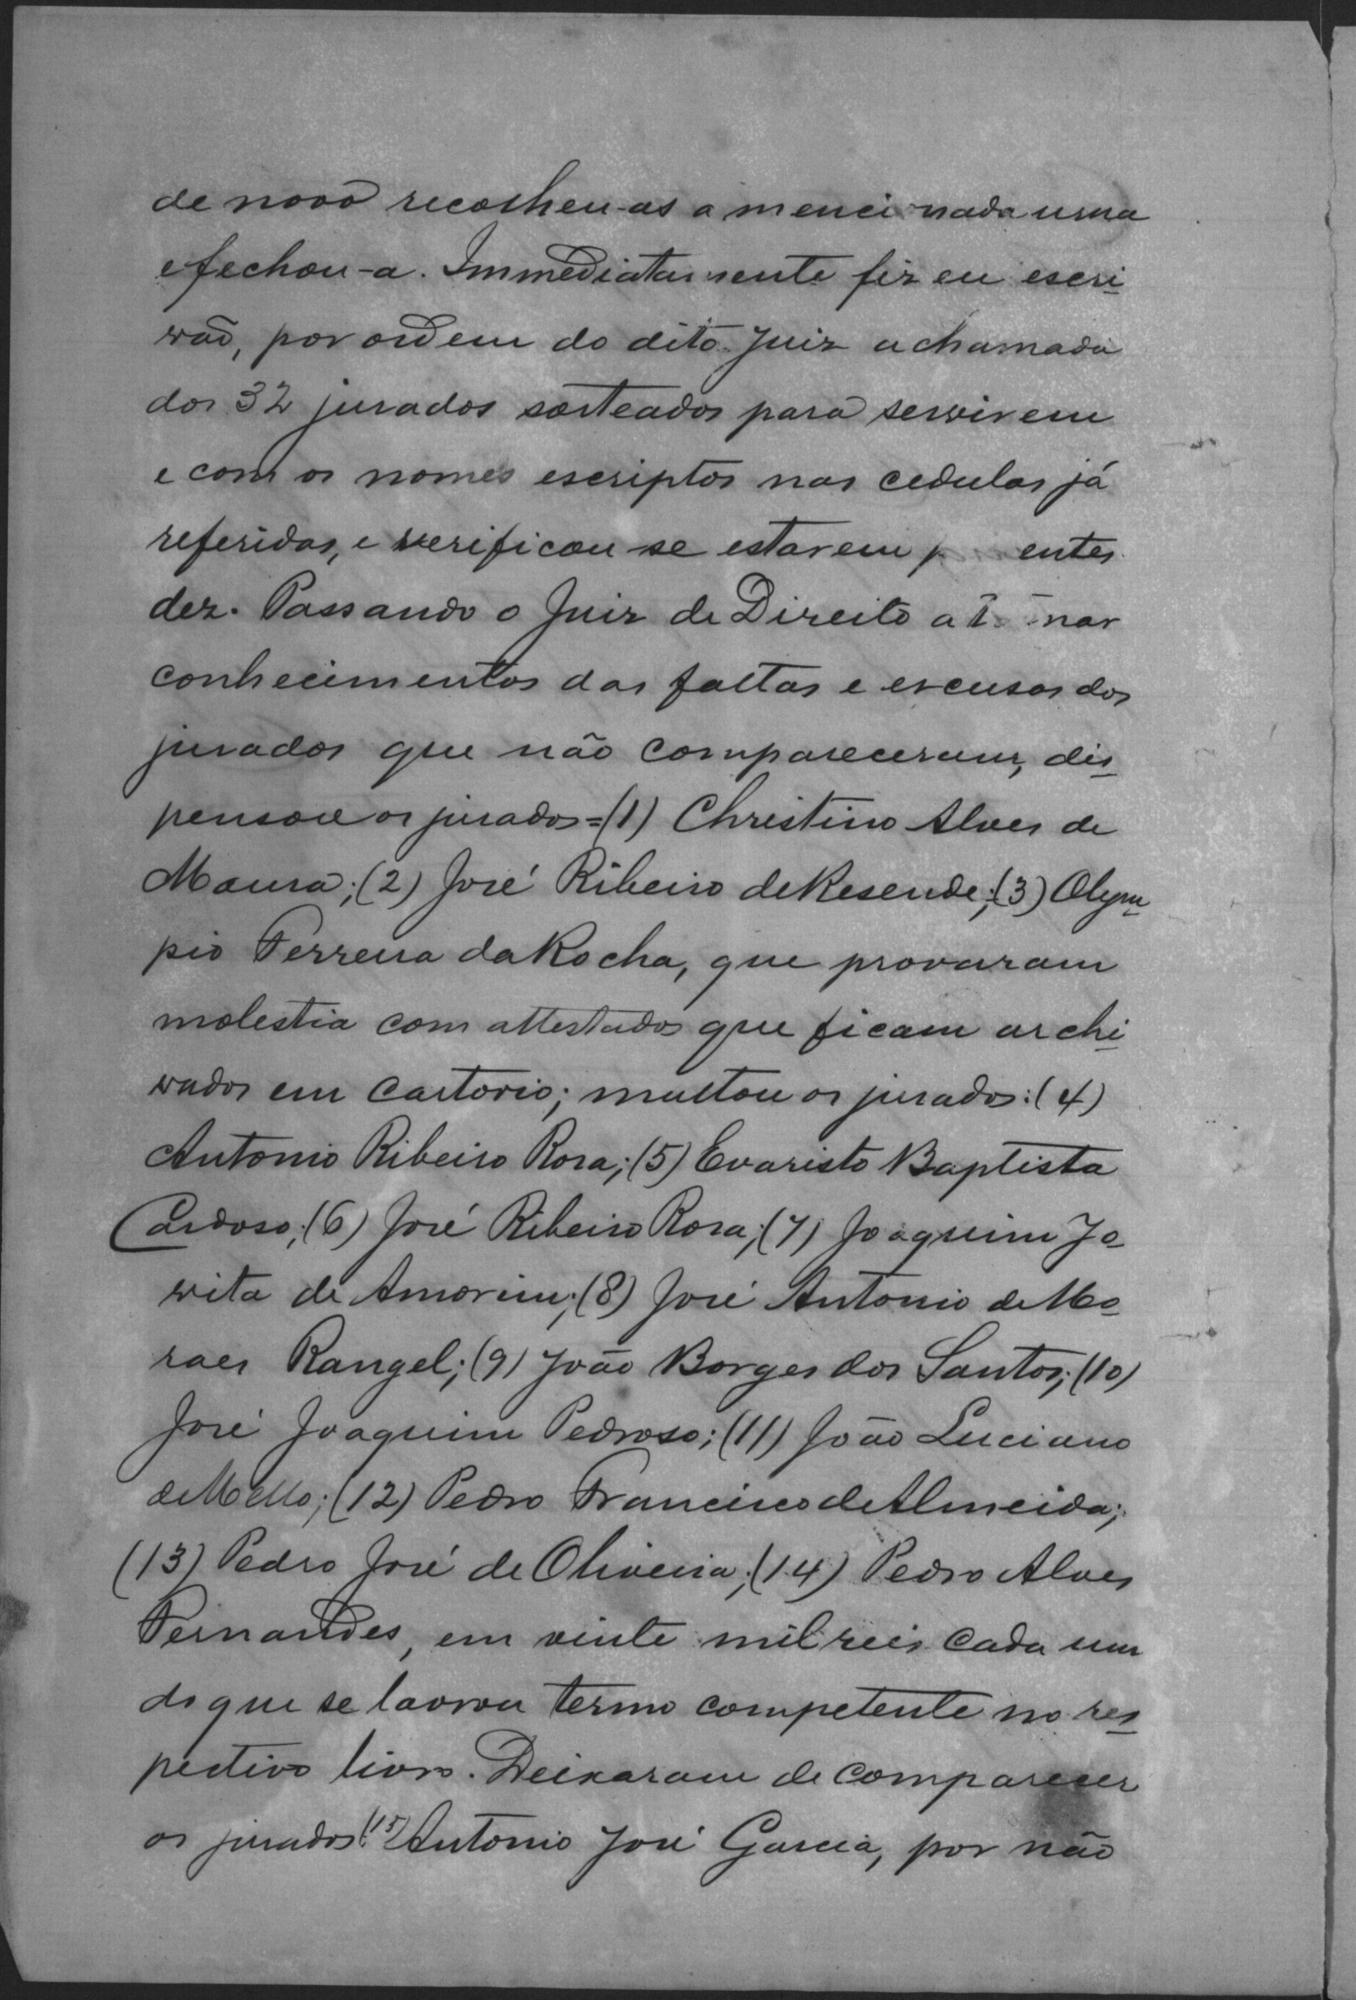 de novo recolheu-as a mencionada urna
e fechou-a. Immediatamente fiz eu escri
vão, por ordem do dito Juiz a chamada
dos 32 jurados sorteados para servirem
e com os nomes escriptos nas cedulas já
referidas, e verificou-se estarem p entes
dez. Passando o Juiz de Direito a t mar
conhecimentos das faltas e excusas dos
jurados que não compareceram, dis
pensou os jurados=(1) Christino Alves de
Moura; (2) José Ribeiro de Resende; (3) Olym
pio Ferreira da Rocha, que provaram
molestia com attestados que ficam archi
vados em cartorio; multou os jurados: (4)
Antonio Ribeiro Rosa; (5) Evaristo Baptista
Cardoso; (6) José Ribeiro Rosa; (7) Joaquim Jo
vita de Amorim; (8) José Antonio de Mo
raes Rangel; (9) João Borges dos Santos; (10)
José Joaquim Pedroso; (11) João Luciano
de Mello; (12) Pedro Francisco de Almeida;
(13) Pedro José de Oliveira; (14) Pedro Alves
Fernandes, em vinte mil reis cada um
do que se lavrou termo competente no res
pectivo livro. Deixaram de comparecer
os jurados: (15) Antonio José Garcia, por não